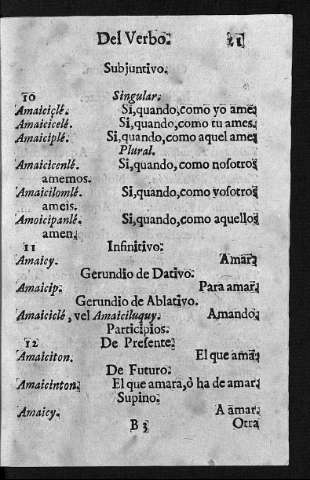 Del Verbo. 21
Subjuntivo.
10 Singular.
Amaiciclé. Si, quando, como yo ame.
Amaicicelé. Si, quando, como tu ames.
Amaiciplé. Si, quando, como aquel ame.
Plural.
Amaicicenlé. Si, quando, como nosotros
amemos.
Amaicilomlé. Si, quando, como vosotros
ameis.
Amoicipanlé. Si, quando, como aquellos
amen.
11 Infinitivo.
Amaicy. Amar.
Gerundio de Dativo.
Amaicip. Para amar.
Gerundio de Ablativo.
Amaiciclé, vel Amaiciluquy. Amando.
Participios.
12 De Presente.
Amaiciton. El que ama.
De Futuro.
Amaicinton. El que amara, ò ha de amar.
Supino.
Amaicy. A amar.
B 3 Otra